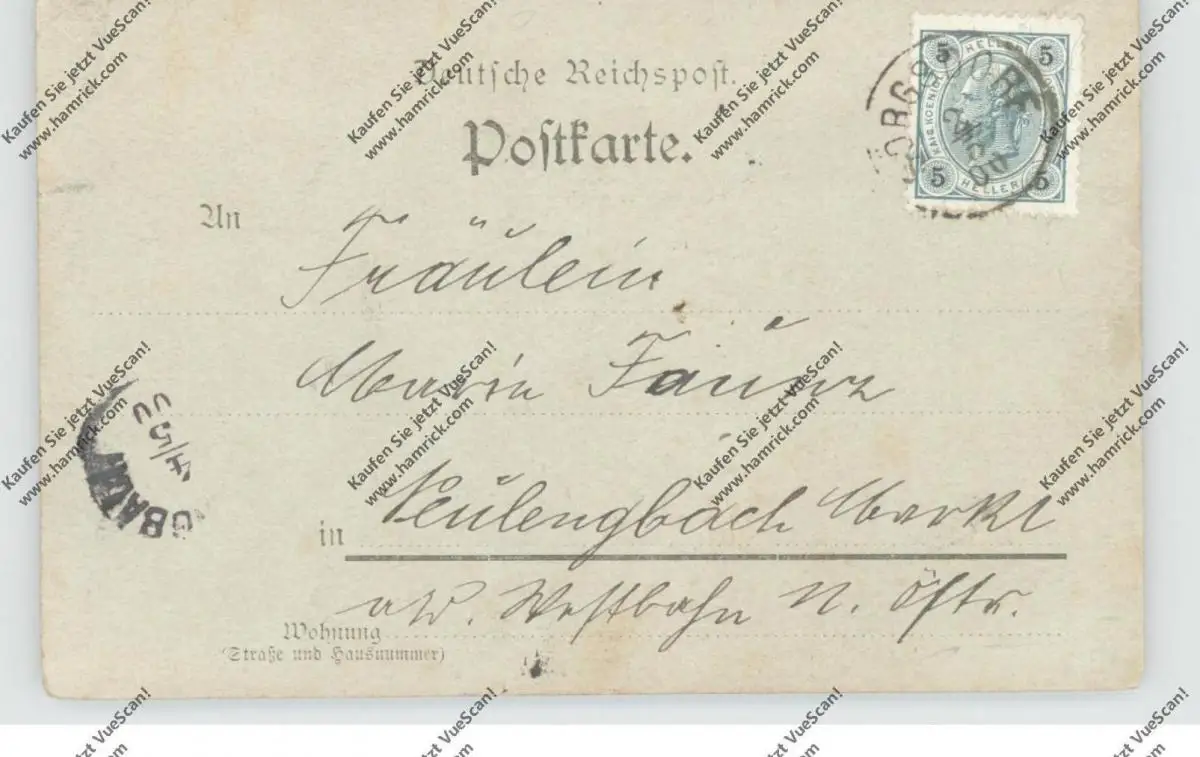 Deutsche Reichspost.
Postkarte.
5 HELLER 5
5 HELLER 5
An
Fräulein
Maria
Neulengbach Markt
in
a/d. Westbahn N. Östr.
Wohnung
(Straße und Hausnummer)
4/5 00
GBACH
Kaufen Sie jetzt VueScan!
www.hamrick.com